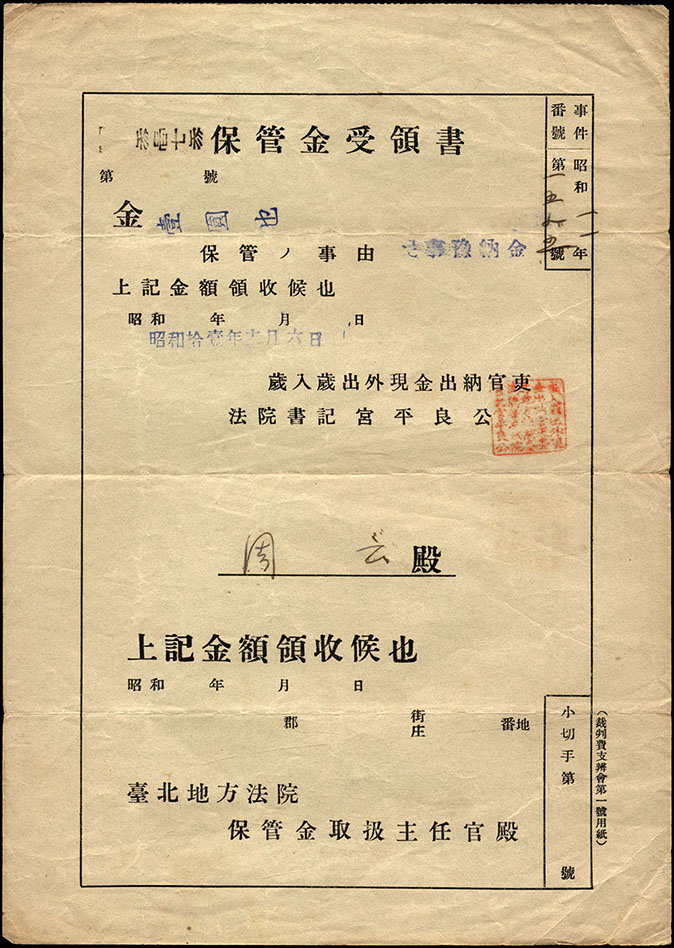 保管金受領書
事件番號
昭和一一年
第一五
號
第 號
金 壹圓也
保管ノ事由 豫納金
上記金額領收候也
昭和 年 月 日
昭和拾壹年
月六日
歲入歲出外現金出納官吏
法院書記 宮平良公
周 殿
上記金額領收候也
昭和 年 月 日
郡 街庄 番地
臺北地方法院
保管金取扱主任官殿
小切手第 號
(裁判費支辨會第一號用紙)